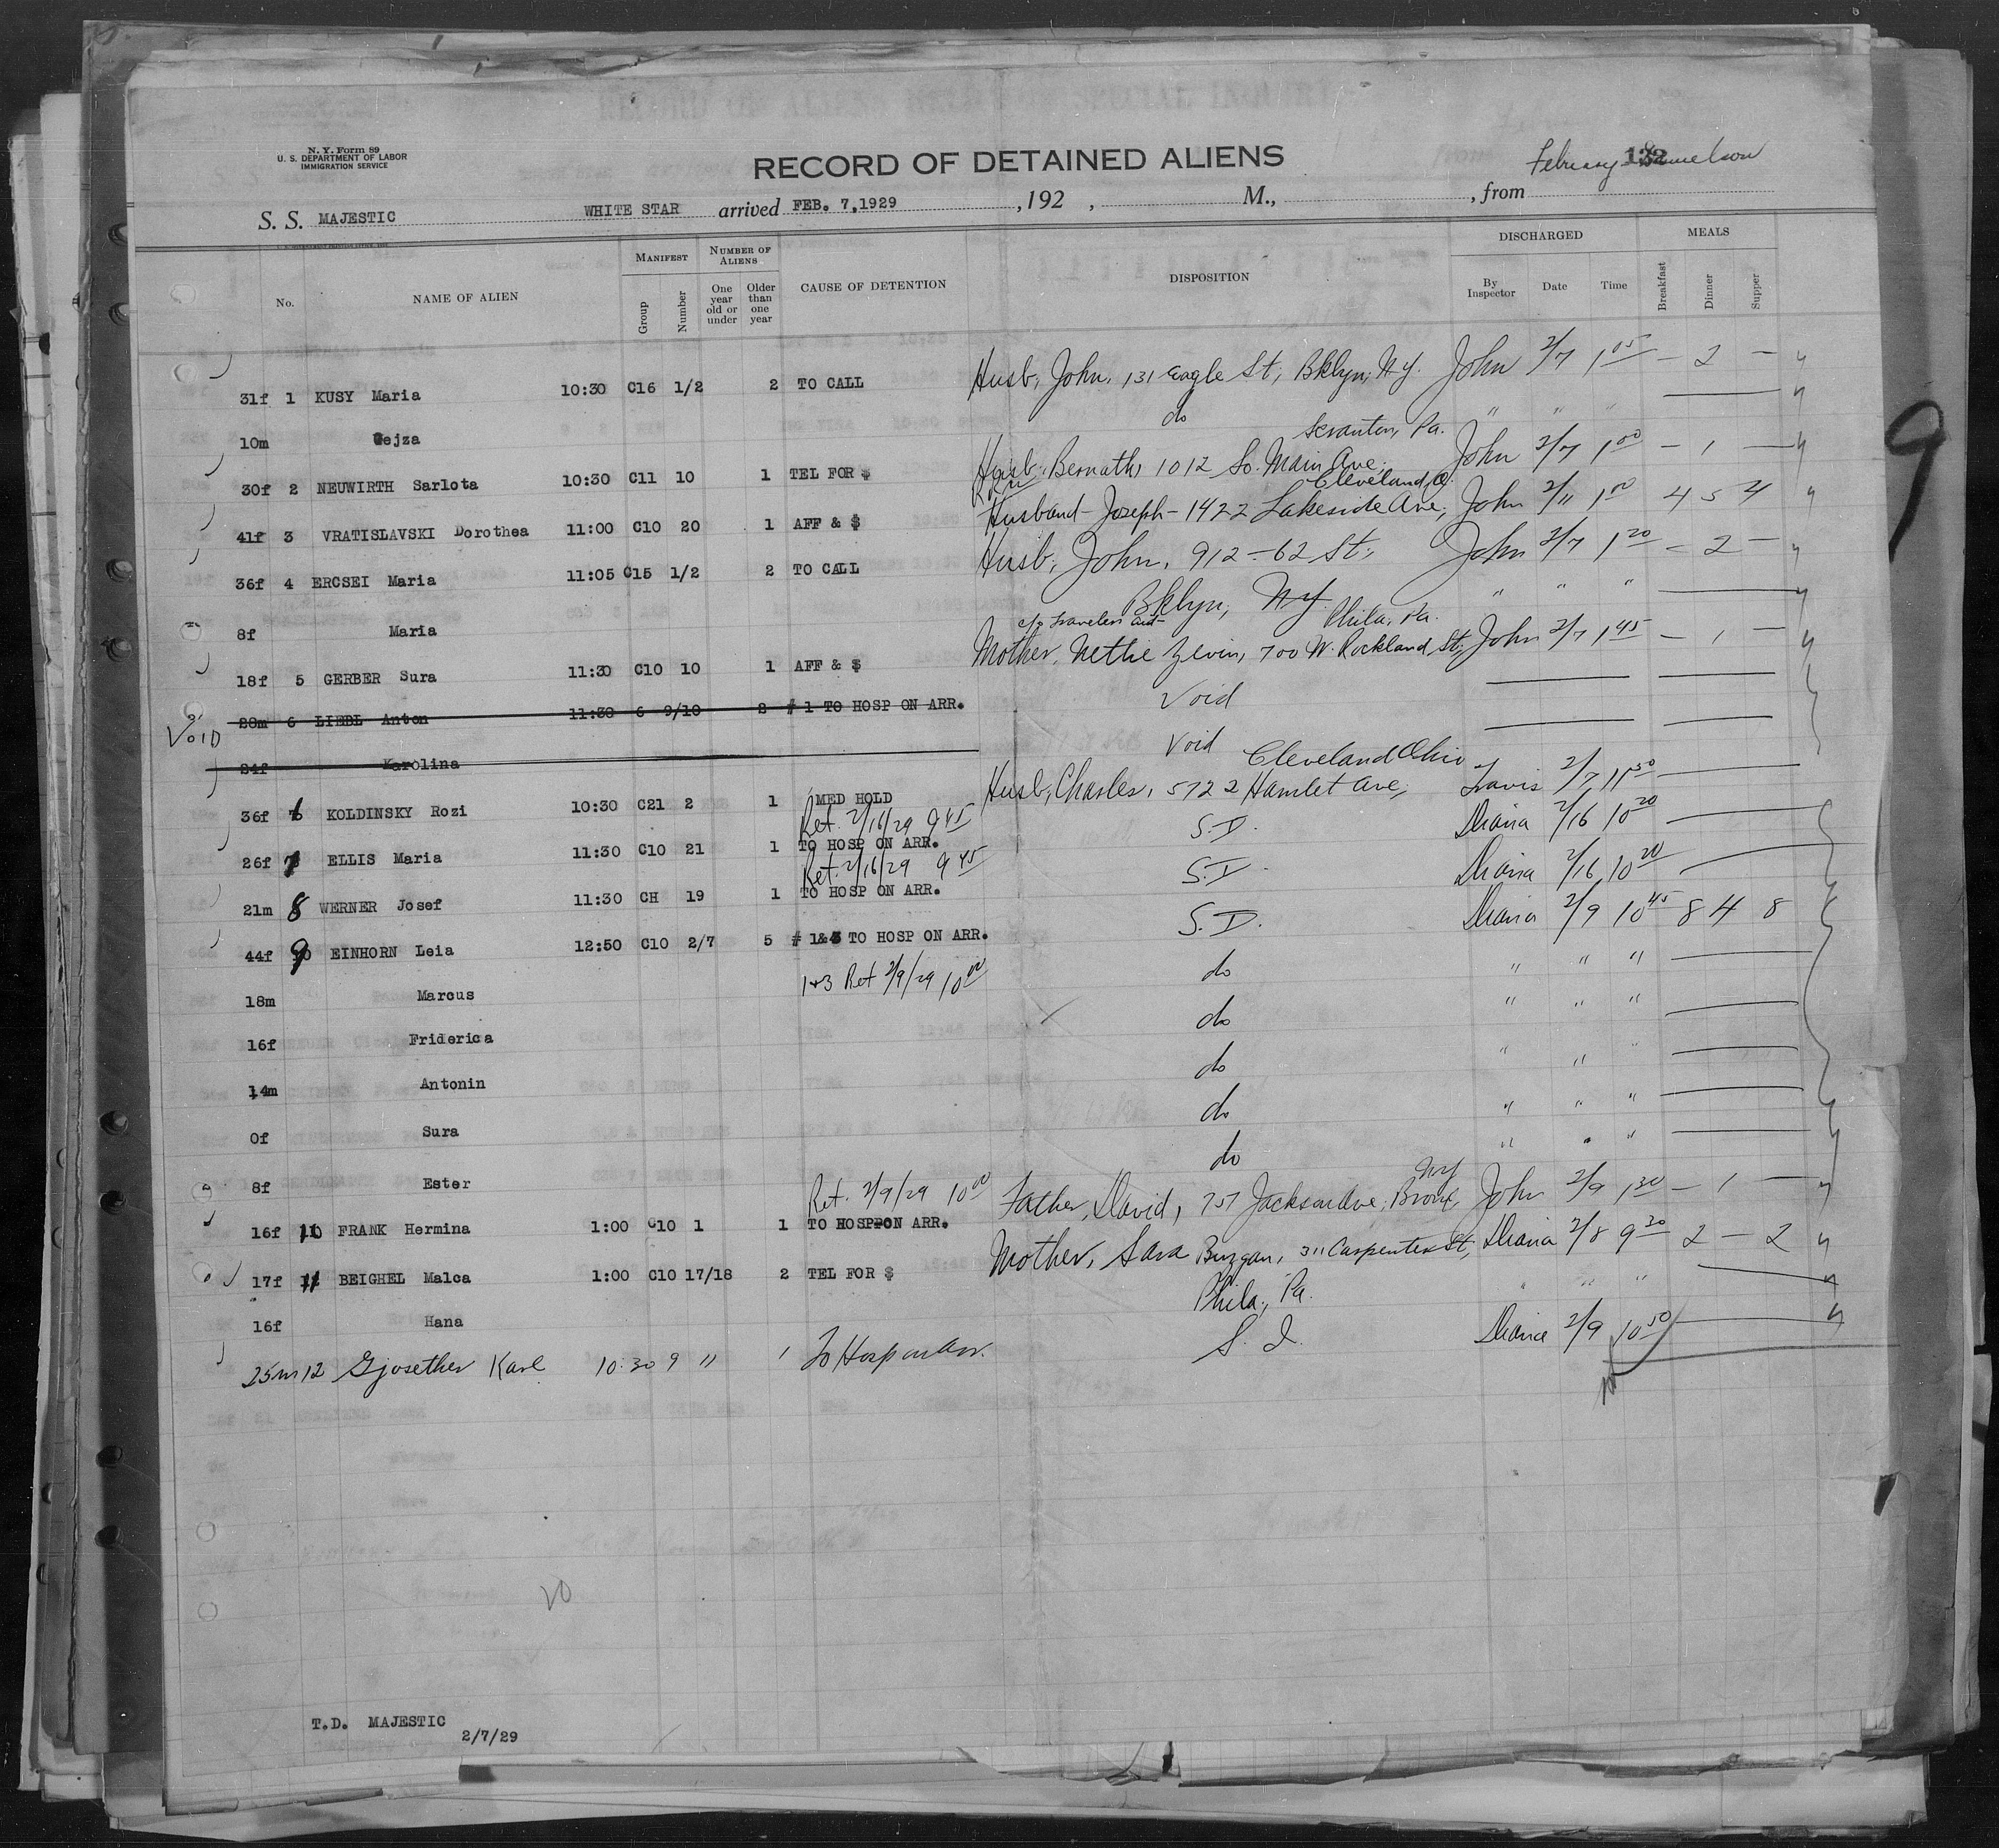 N. Y. Form 89
U. S. DEPARTMENT OF LABOR
IMMIGRATION SERVICE
RECORD OF DETAINED ALIENS
February 132
S. S. MAJESTIC WHITE STAR arrived FEB. 7,1929 , 192 , M., , from
No. NAME OF ALIEN MANIFEST Group Number NUMBER OF ALIENS One year old or under Older than one year CAUSE OF DETENTION DISPOSITION DISCHARGED By Inspector Date Time MEALS Breakfast Dinner Supper
31f 1 KUSY Maria 10:30 C16 1/2 2 TO CALL Husb, John, 131 Eagle St, Bklyn, N.Y. John 2/7 1 05 — 2 —
10m Gejza do " " "
Scranton, Pa.
30f 2 NEUWIRTH Sarlota 10:30 C11 10 1 TEL FOR $ Husb. Bernath, 1012 So. Main Ave. John 2/7 1 00 — 1 —
Cleveland, O.
41f 3 VRATISLAVSKI Dorothea 11:00 C10 20 1 AFF & $ Husband - Joseph - 1422 Lakeside Ave, John 2/11 1 00 4 5 4
36f 4 ERCSEI Maria 11:05 C15 1/2 2 TO CALL Husb, John, 912 - 62 St, John 2/7 1 20 — 2 —
8f Maria Bklyn, N.Y. " " "
c/o Travelers Aid Phila, Pa.
18f 5 GERBER Sura 11:30 C10 10 1 AFF & $ Mother, Nettie Zevin, 700 W. Rockland St, John 2/7 1 45 — 1 —
VOID 28m 6 LIEBL Anton 11:30 6 9/10 2 # 1 TO HOSP ON ARR. Void
24f Karolina Void
Cleveland Ohio
36f 6 KOLDINSKY Rozi 10:30 C21 2 1 MED HOLD Husb, Charles, 5722 Hamlet Ave, Travis 2/7 11 50
Ret. 2/16/29 9 45
26f 7 ELLIS Maria 11:30 C10 21 1 TO HOSP ON ARR. S.I. 2/16 10 20
Ret. 2/16/29 9 45
21m 8 WERNER Josef 11:30 CH 19 1 TO HOSP ON ARR. S.I. 2/16 10 20
44f 9 EINHORN Leia 12:50 C10 2/7 5 # 1&3 TO HOSP ON ARR. S.I. 2/9 10 45 8 4 8
18m Marcus 1+3 Ret 2/9/29 10 00 do " " "
16f Friderica do " " "
14m Antonin do " " "
0f Sura do " " "
8f Ester do " " "
Ret. 2/9/29 10 00 NY
16f 10 FRANK Hermina 1:00 C10 1 1 TO HOSPPON ARR. Father, David, 757 Jackson Ave, Bronx, John 2/9 1 30 — 1 —
17f 11 BEIGHEL Malca 1:00 C10 17/18 2 TEL FOR $ Mother, Sara Burgan, 311 Carpenter St, 2/8 9 20 2 — 2
16f Hana Phila, Pa. " " "
25m 12 Gjosether Karl 10:30 9 11 1 To Hosp on Arr. S. I. 2/9 10 50
20
T.D. MAJESTIC
2/7/29
9